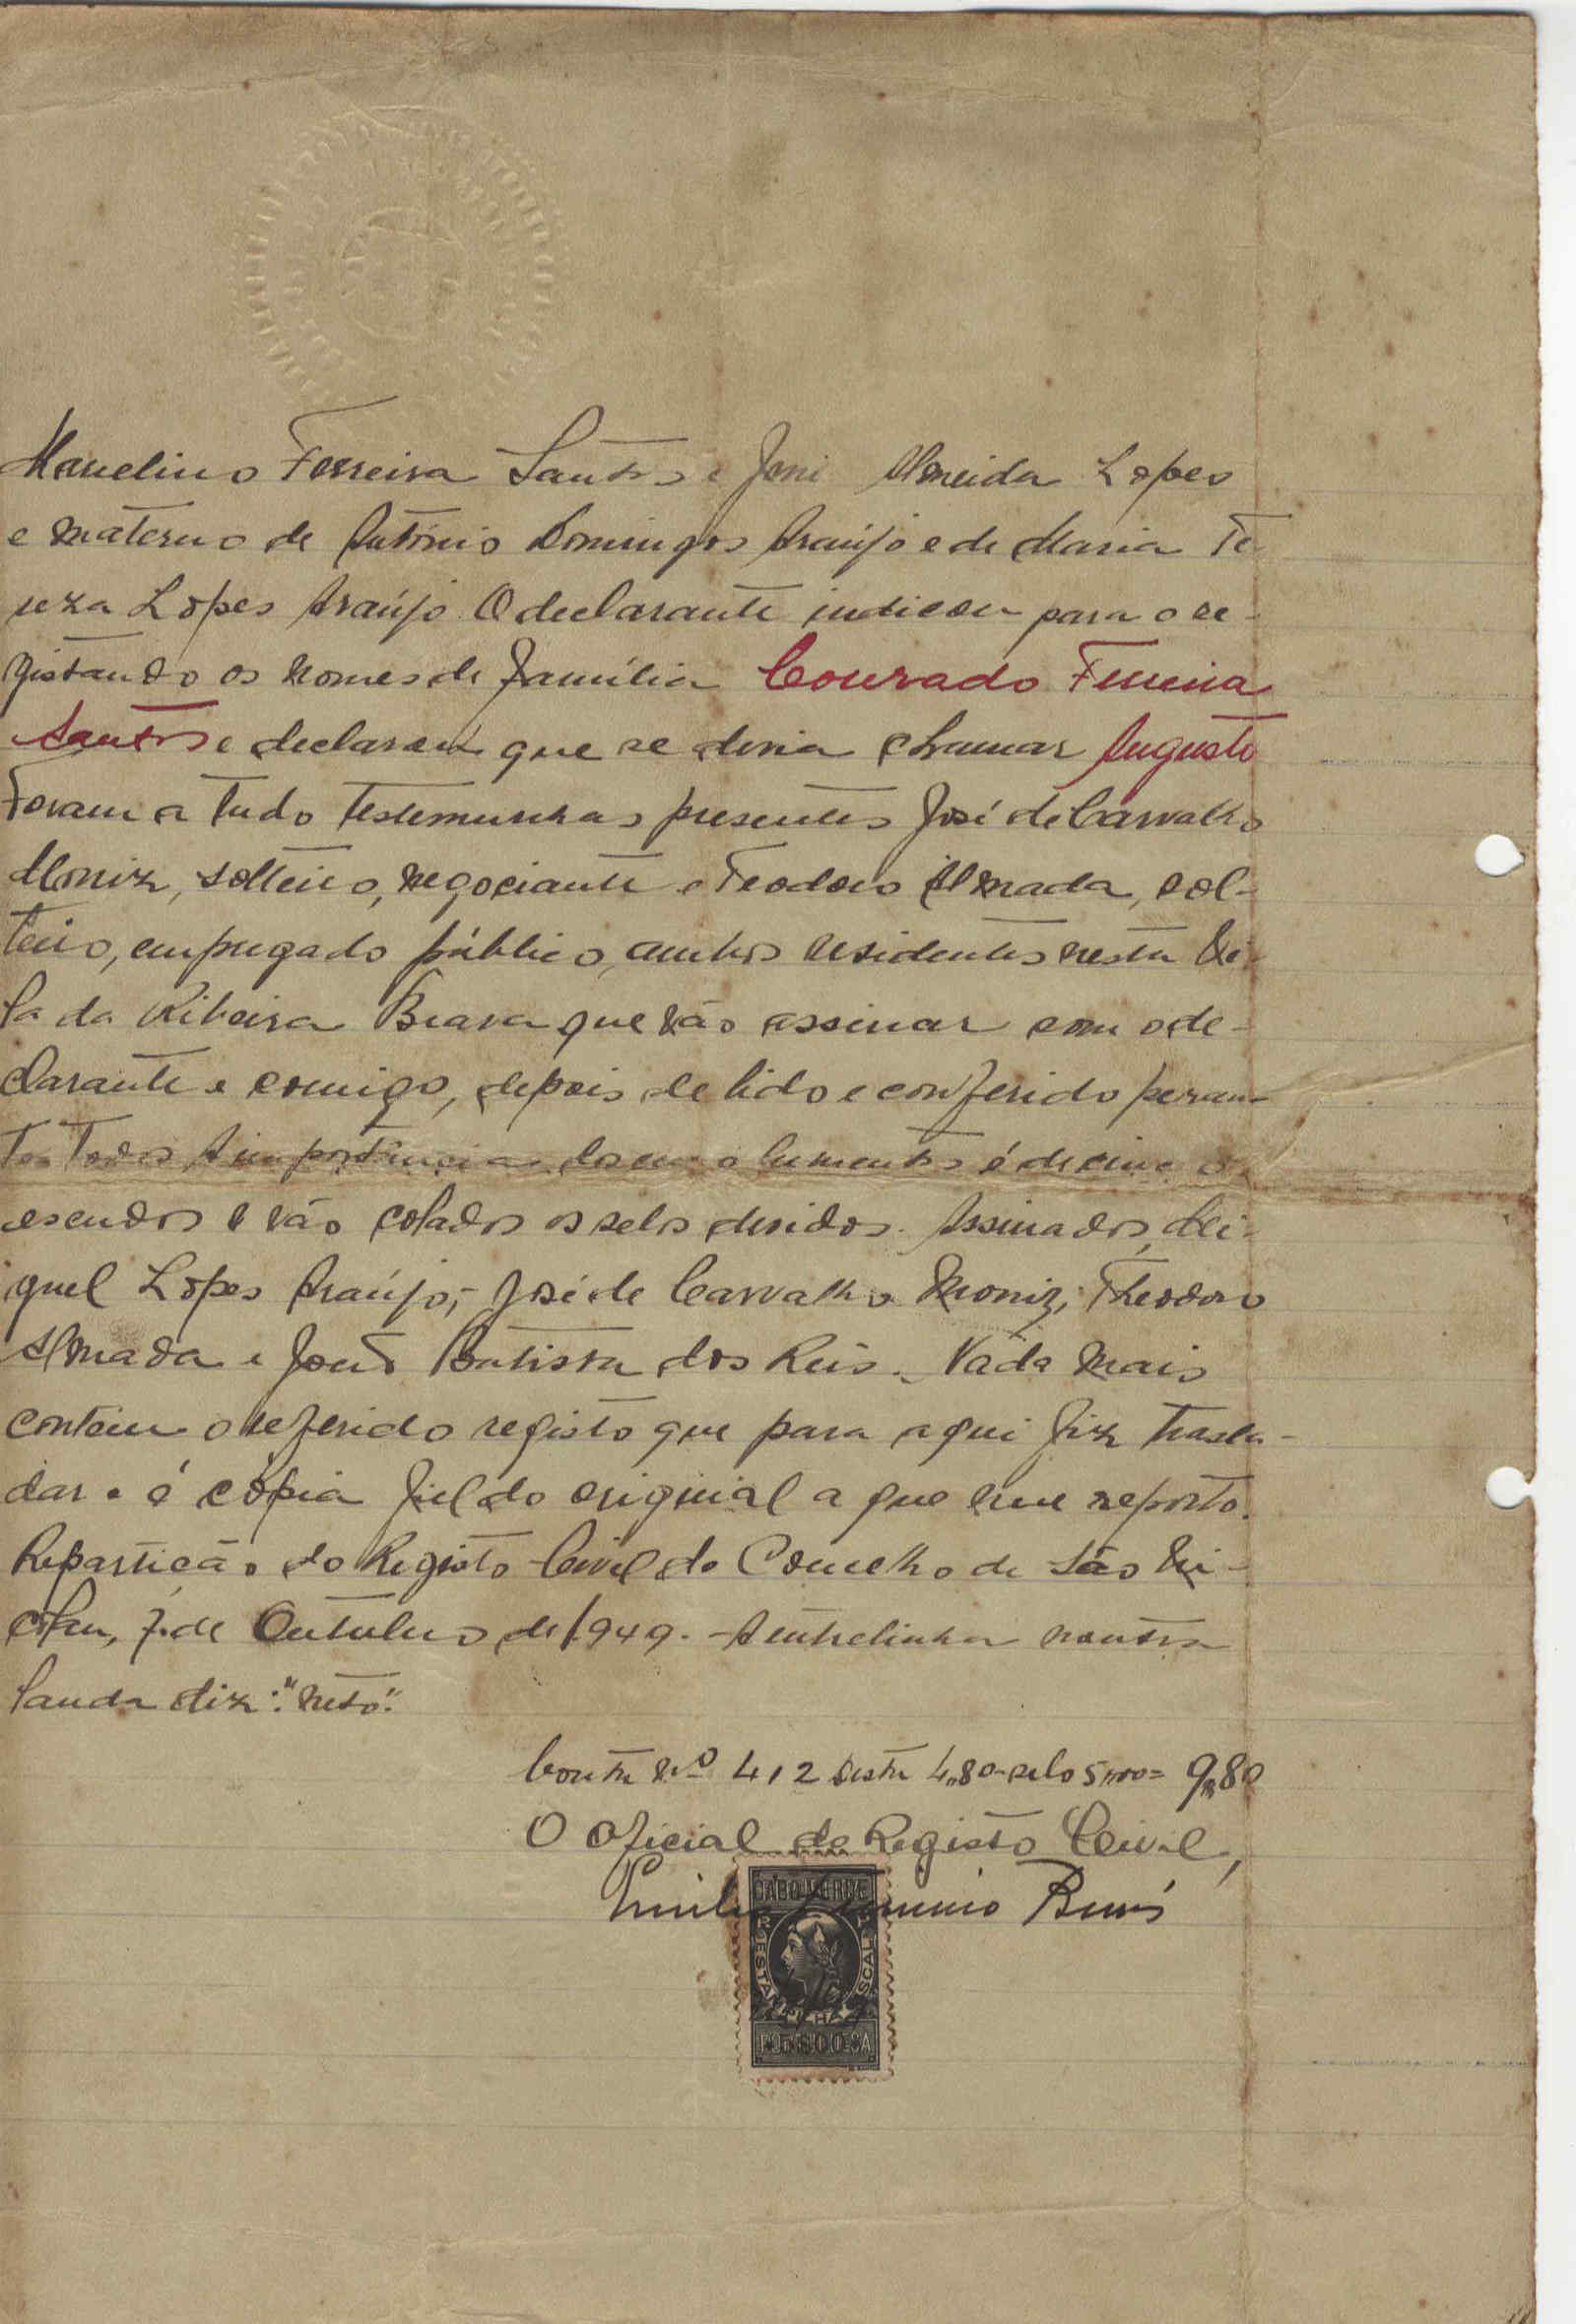 Marcelino Ferreira Santos e Almeida Lopes
e materno de António Domingos Araújo e de Maria Te-
reza Lopes Araújo. O declarante indicou para o re-
gistando os nomes de família Conrado Ferreira
Santos e declarou que se devia chamar Augusto
Foram a tudo testemunhas presentes José de Carvalho
Moniz, solteiro, negociante e Teodoro Almada, sol-
teiro, empregado público, ambos residentes nesta Vi-
la da Ribeira Brava que vão assinar com o de-
clarante e comigo, depois de lido e conferido peran-
te todos A importância dos emolumentos é de cinco
escudos e vão colados os selos devidos. Assinados, Mi-
guel Lopes Araújo; José de Carvalho Moniz; Theodoro
Almada e João Batista dos Reis. Nada mais
contém o referido registo que para aqui fiz trasla-
dar e é cópia fiel do original a que me reporto.
Repartição do Registo Civil do Concelho de São Ni-
colau, 7 de Outubro de 1949. A entrelinha noutra
lauda diz: "neto".
Conta nº 412 desta 4,80 selo 5,00 = 9,80
O Oficial do Registo Civil,
CABO VERDE
ESTAMPILHA FISCAL
5$00